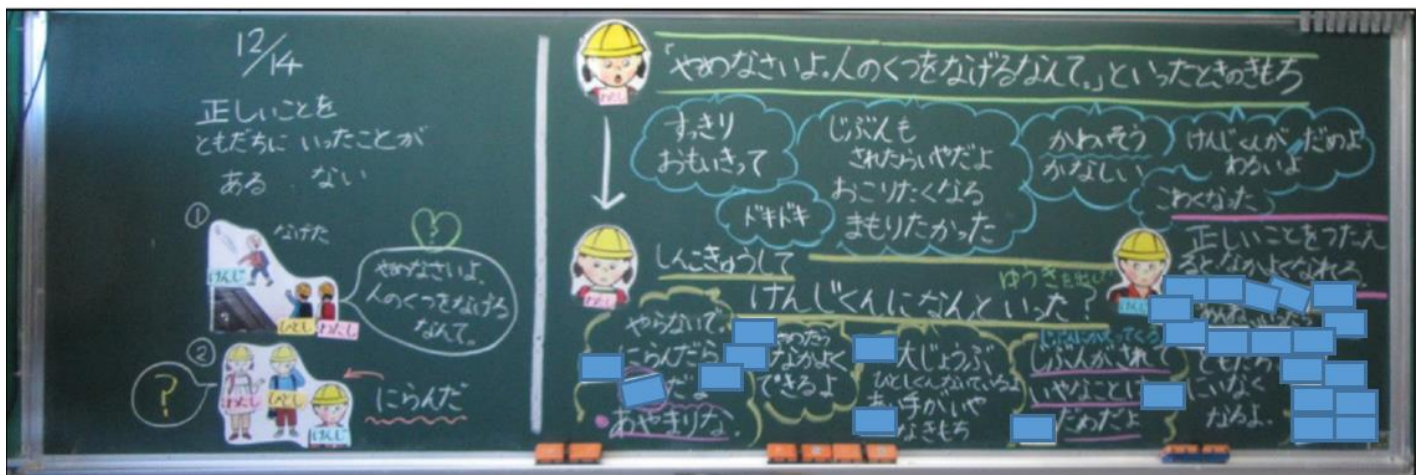 12/14
正しいことを
ともだちに いったことが
ある ない
①
なげた
けんじ
ひとし
わたし
?
やめなさいよ、
人のくつをなげる
なんて。
②
?
わたし
ひとし
けんじ
にらんだ
わたし
「やめなさいよ。人のくつをなげるなんて。」といったときのきもち
すっきり
おもいきって
じぶんも
されたらいやだよ
おこりたくなる
まもりたかった
ドキドキ
かわいそう
かなしい
けんじくんが だめよ
わるいよ
こわくなった
わたし
しんこきゅうして
ゆうきを出し
けんじくんになんといった?
正しいことをつたえ
ると、なかよくなれる。
やらないで
にらんだら
だよ
あやまりな。
なかよく
できるよ
大じょうぶ
ひとしくんないているよ
あい手がいや
なきもち
じぶんにかえってくる
じぶんがされて
いやなことは
だめだよ
ともだち
にいなく
なるよ。